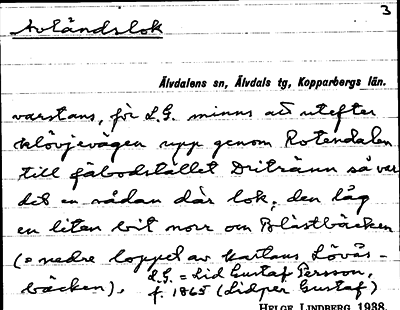 3
Avländslok
Älvdalens sn, Älvdals tg, Kopparbergs län.
varstans, för L.G. minns att utefter
klövjevägen upp genom Rotendalen
till fäbodstället Dritränn så var
det en sådan där lok, den låg
en liten bit norr om Blästbäcken
(= nedre loppet av Martans Lövås-
bäcken). L.G. = Lid Gustaf Persson,
f. 1865 (Lidper Gustaf)
HELGE LINDBERG 1938.